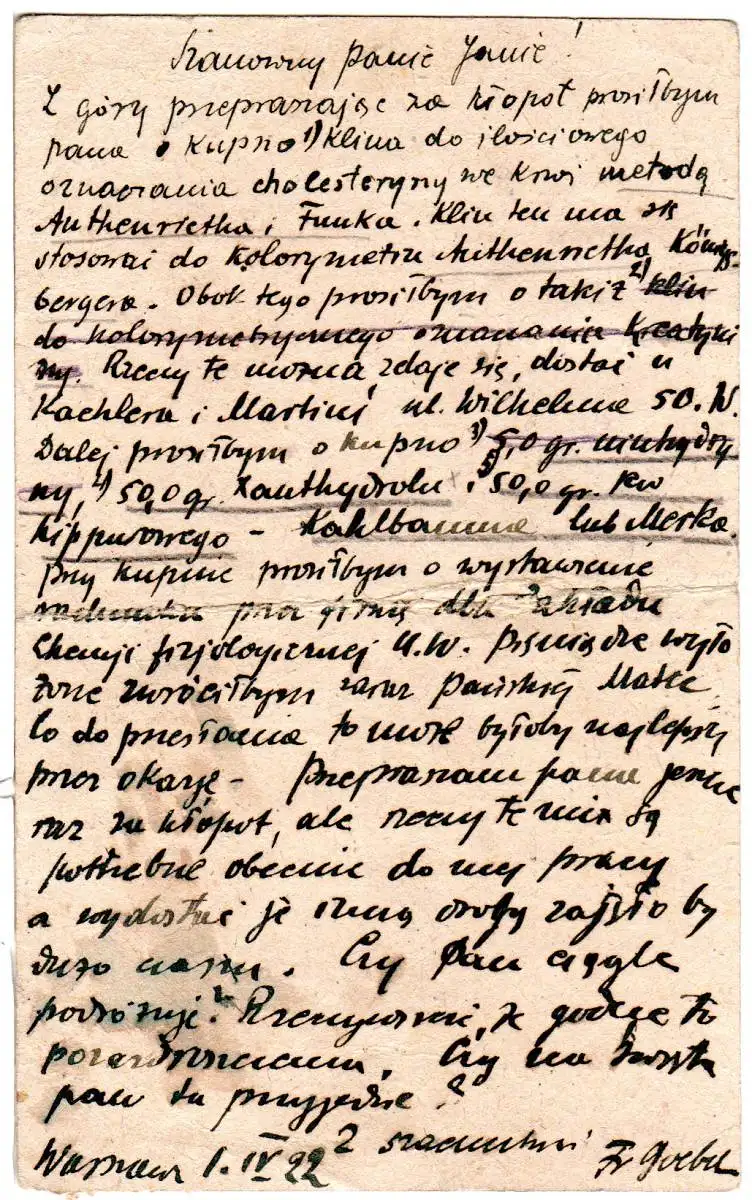 Szanowny Panie Janie!
Z góry przepraszając za kłopot prosiłbym
pana o kupno 1) klina do ilościowego
oznaczania cholesteryny we krwi metodą
Authenrietha i Funka. Klin ten ma się
stosować do kolorymetru Authenrietha Königs
bergera. Obok tego prosiłbym o takiż 2) klin
do kolorymetrycznego oznaczania kreatyni
ny. Rzeczy te można, zdaje się, dostać u
Kaehlera i Martini ul. Wilhelma 50. W.
Dalej prosiłbym o kupno 3) 5,0 gr. ninhydry
ny, 4) 50,0 gr. Xanthydrolu i 5) 50,0 gr. kw
hippurowego - Kahlbauma lub Merka.
Przy kupnie prosiłbym o wystawienie
rachunku przez firmę dla Zakładu
Chemji fizjologicznej U.W. Pieniądze wyło
żone zwróciłbym zaraz Pańskiej Matce
Co do przesłania to może byłoby najlepiej
przez okazję - Przepraszam pana jeszcze
raz za kłopot, ale rzeczy te mnie są
potrzebne obecnie do mej pracy
a wydostać je inną drogą zajęło by
dużo czasu. Czy Pan ciągle
podróżuje? Rzeczywiście, że godne to
pozazdroszczenia. Czy na święta
pan tu przyjedzie?
Z szacunkiem
Warszawa 1. IV 22 Fr Goebel